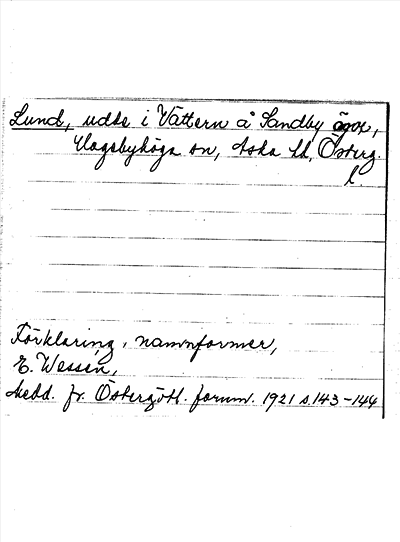 Lund, udde i Vättern å Sandby ägor,
Vlagsbyhöga sn, Aska hd, Österg.
l.
Förklaring, namnformer,
E. Wessén,
Medd. fr. Östergötl. fornm. 1921 s. 143-144